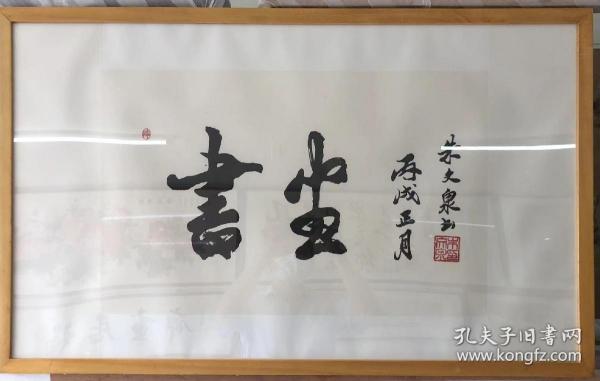 書
丙戌正月
朱文泉书
孔夫子旧書网
www.kongfz.com